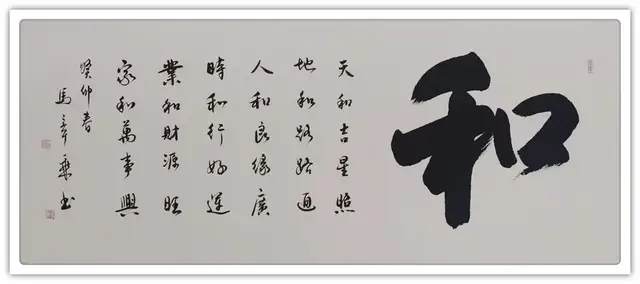 和
天和吉星照
地和路路通
人和良緣廣
時和行好運
業和財源旺
家和萬事興
癸卯春
馬彥乘书